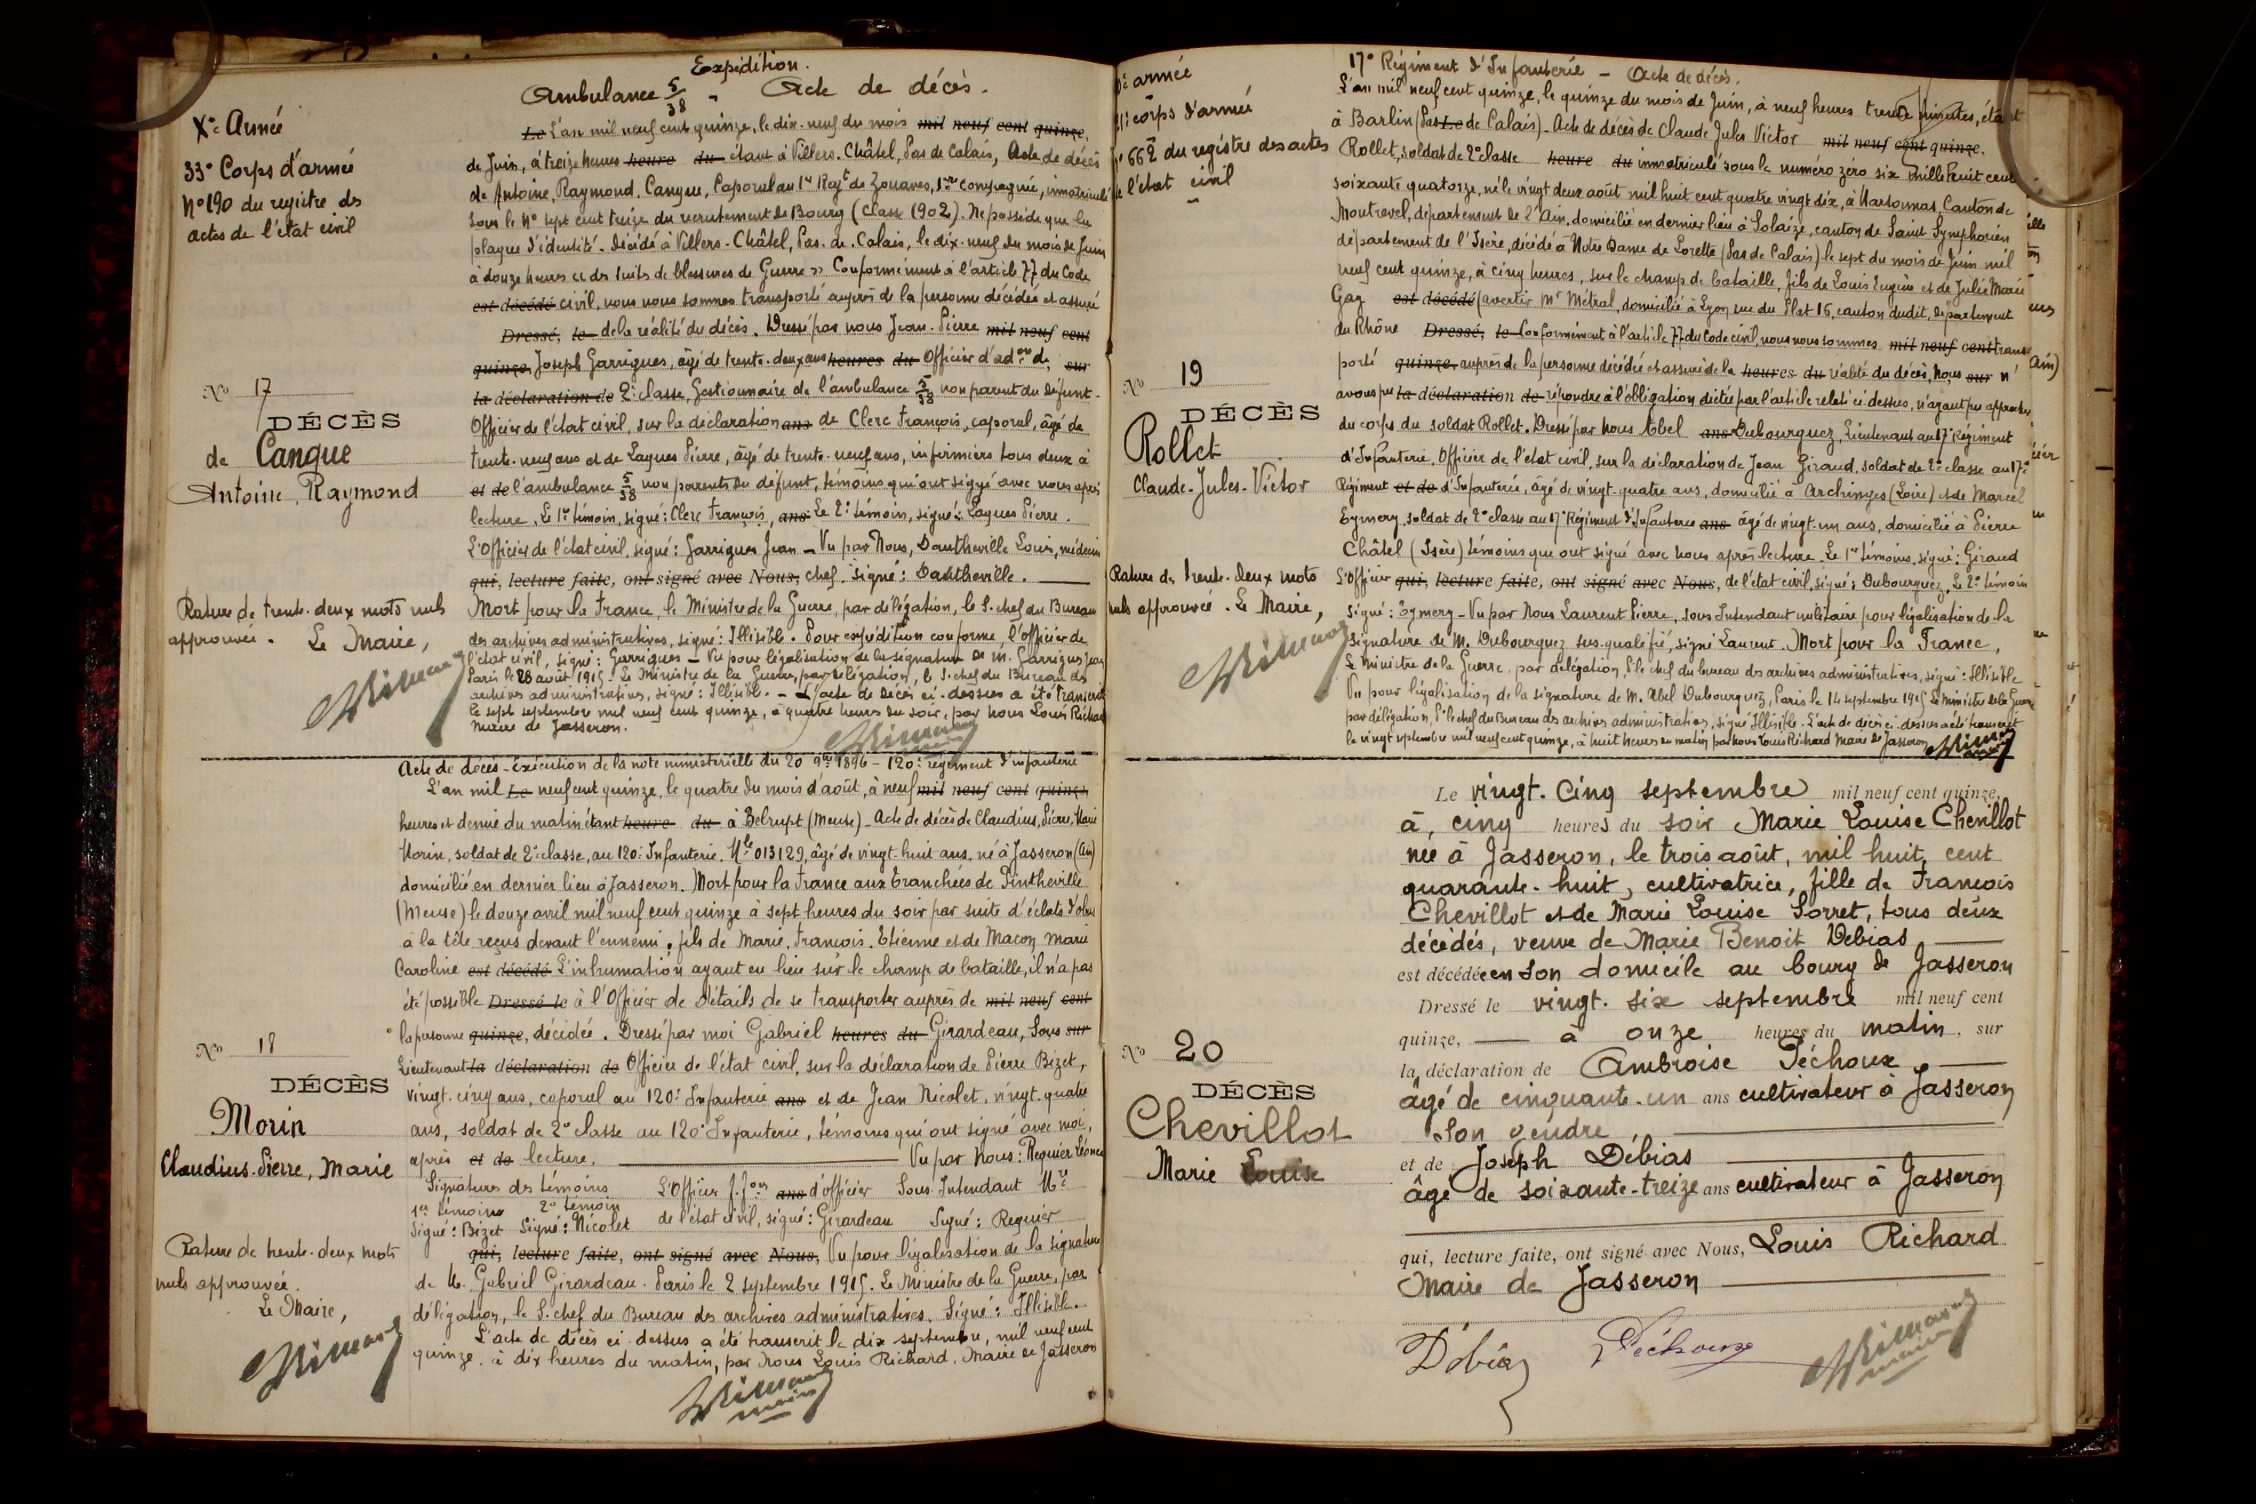 Expédition.
Ambulance 5/38 - Acte de décès.
Xe Armée
33e Corps d'armée
No 190 du registre des
actes de l'état civil
No 17
DÉCÈS
de Cangue
Antoine, Raymond
Rature de trente-deux mots nuls
approuvée. Le Maire,
Le L'an mil neuf cent quinze, le dix-neuf du mois mil neuf cent quinze,
de Juin, à treize heures heure du étant à Villers-Châtel, Pas de Calais, Acte de décès
de Antoine, Raymond, Cangue, Caporal au 1er Regt de Zouaves, 1ère compagnie, immatriculé
sous le No sept cent treize du recrutement de Bourg (Classe 1902). Ne possède que la
plaque d'identité. Décédé à Villers-Châtel, Pas-de-Calais, le dix-neuf du mois de Juin
à douze heures « des suites de blessures de Guerre ». Conformément à l'article 77 du Code
est décédé civil, nous nous sommes transporté auprès de la personne décédée et assuré
Dressé, le de la réalité du décès. Dressé par nous Jean-Pierre mil neuf cent
quinze, Joseph Garrigues, âgé de trente-deux ans heures du Officier d'adon de sur
la déclaration de 2e classe, Gestionnaire de l'ambulance 5/38 non parent du défunt-
Officier de l'état civil, sur la déclaration ans de Clerc François, caporal, âgé de
trente-neuf ans et de Laques Pierre, âgé de trente-neuf ans, infirmiers tous deux à
et de l'ambulance 5/38 non parents du défunt, témoins qui ont signé avec nous après
lecture. Le 1er témoin, signé: Clerc François, ans Le 2e témoin, signé: Laques Pierre.
L'Officier de l'état civil, signé: Garrigues Jean - Vu par Nous, Dautheville Louis, médecin
qui, lecture faite, ont signé avec Nous, chef signé: Dautheville.
Mort pour la France, le Ministre de la Guerre, par délégation, le S.chef du Bureau
des archives administratives, signé: Illisible. Pour expédition conforme, l'officier de
l'état civil, signé: Garrigues - Vu pour légalisation de la signature de M. Garrigues Jean
Paris le 28 août 1915. Le Ministre de la Guerre, par délégation, le S.chef du Bureau des
archives administratives, signé: Illisible. - L'acte de décès ci-dessus a été transcrit
le sept septembre mil neuf cent quinze, à quatre heures du soir, par nous Louis Richard
maire de Jasseron.
No 18
DÉCÈS
Morin
Claudius-Pierre, Marie
Rature de trente-deux mots
nuls approuvée.
Le Maire,
Acte de décès - Exécution de la note ministérielle du 20 9bre 1896 - 120e régiment d'infanterie
L'an mil Le neuf cent quinze, le quatre du mois d'août, à neuf mil neuf cent quinze,
heures et demie du matin étant heure du à Belrupt (Meuse) - Acte de décès de Claudius, Pierre, Marie
Morin, soldat de 2e classe, au 120e Infanterie. Mle 013129, âgé de vingt-huit ans, né à Jasseron (Ain)
domicilié en dernier lieu à Jasseron. Mort pour la France aux tranchées de Pintheville
(Meuse) le douze avril mil neuf cent quinze à sept heures du soir par suite d'éclats d'obus
à la tête reçus devant l'ennemi, fils de Marie, François, Etienne et de Macon Marie
Caroline est décédé L'inhumation ayant eu lieu sur le champ de bataille, il n'a pas
été possible Dressé le à l'Officier de détails de se transporter auprès de mil neuf cent
la personne quinze, décédée. Dressé par moi Gabriel heures du Girardeau, Sous sur
Lieutenant la déclaration de Officier de l'état civil, sur la déclaration de Pierre Bizet,
vingt-cinq ans, caporal au 120e Infanterie ans et de Jean Nicolet, vingt-quatre
ans, soldat de 2e classe au 120e Infanterie, témoins qui ont signé avec moi,
après et de lecture. Vu par Nous: Requier Léonce
Signatures des témoins L'Officier f.fons ans d'officier Sous-Intendant Mre
1er témoin 2e témoin
Signé: Bizet Signé: Nicolet de l'état civil, signé: Girardeau Signé: Requier
qui, lecture faite, ont signé avec Nous, Vu pour légalisation de la signature
de M. Gabriel Girardeau. Paris le 2 septembre 1915. Le Ministre de la Guerre, par
délégation, le S.chef du Bureau des archives administratives. Signé: Illisible.
L'acte de décès ci-dessus a été transcrit le dix septembre, mil neuf cent
quinze, à dix heures du matin, par nous Louis Richard, Maire de Jasseron
maire
armée
corps d'armée
662 du régistre des actes
l'état civil
No 19
DÉCÈS
Rollet
Claude-Jules-Victor
Rature de trente-deux mots
nuls approuvée. Le Maire,
17e Régiment d'Infanterie - Acte de décès.
L'an mil neuf cent quinze, le quinze du mois de Juin, à neuf heures trente minutes, étant
à Barlin (Pas Le de Calais) - Acte de décès de Claude Jules Victor mil neuf cent quinze.
Rollet, soldat de 2e classe heure du immatriculé sous le numéro zéro six mille huit cent
soixante quatorze, né le vingt deux août mil huit cent quatre vingt dix, à Marsonnas, Canton de
Montrevel, département de l'Ain, domicilié en dernier lieu à Solaize, canton de Saint Symphorien
département de l'Isère, décédé à Notre Dame de Lorette (Pas de Calais) le sept du mois de Juin mil
neuf cent quinze, à cinq heures, sur le champ de bataille, fils de Louis Eugène et de Julie Marie
Gaz est décédé (avertir Mr Métral, domicilié à Lyon rue du Plat 16, canton dudit, département
du Rhône Dressé, le Conformément à l'article 77 du Code civil, nous nous sommes mil neuf cent trans-
porté quinze, auprès de la personne décédée et assuré de la heures du réalité du décès, Nous sur n'
avons pu la déclaration de répondre à l'obligation dictée par l'article relaté ci-dessus, n'ayant pu approcher
du corps du soldat Rollet. Dressé par nous Abel ans Dubourguez, Lieutenant au 17e Régiment
d'Infanterie, Officier de l'état civil, sur la déclaration de Jean Giraud, soldat de 2e classe au 17e
Régiment et de d'Infanterie, âgé de vingt-quatre ans, domicilié à Archinges (Loire) et de Marcel
Eymery soldat de 2e classe au 17e Régiment d'Infanterie ans âgé de vingt-un ans, domicilié à Pierre
Châtel (Isère) témoins que ont signé avec nous après lecture. Le 1er témoin, signé: Giraud
L'Officier qui, lecture faite, ont signé avec Nous, de l'état civil, signé: Dubourguez, Le 2e témoin
signé: Eymery - Vu par Nous Laurent Pierre, Sous Intendant militaire pour légalisation de la
signature de M. Dubourguez sus-qualifié, signé Laurent. Mort pour la France,
Le Ministre de la Guerre, par délégation, le chef du bureau des archives administratives, signé: Illisible
Vu pour légalisation de la signature de M. Abel Dubourguez, Paris le 14 septembre 1915 Le Ministre de la Guerre
par délégation, le chef du Bureau des archives administratives, signé Illisible. L'acte de décès ci-dessus a été transcrit
le vingt septembre mil neuf cent quinze, à huit heures du matin par nous Louis Richard Maire de Jasseron
No 20
DÉCÈS
Chevillot
Marie Louise
Le vingt-cinq septembre mil neuf cent quinze,
à, cinq heures du soir Marie Louise Chevillot
née à Jasseron, le trois août, mil huit cent
quarante-huit, cultivatrice, fille de François
Chevillot et de Marie Louise Sorret, tous deux
décédés, veuve de Marie Benoit Debias
est décédée en son domicile au bourg de Jasseron
Dressé le vingt-six septembre mil neuf cent
quinze, à onze heures du matin, sur
la déclaration de Ambroise Péchoux
âgé de cinquante-un ans cultivateur à Jasseron
son gendre
et de Joseph Débias
âgé de soixante-treize ans cultivateur à Jasseron
qui, lecture faite, ont signé avec Nous, Louis Richard
Maire de Jasseron
Débias Péchoux
maire